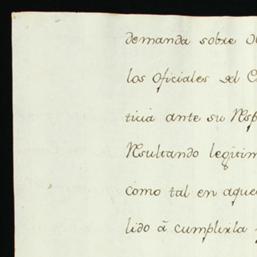 demanda sobre
los oficiales del
ticia ante su Resp
Resultando legitim
como tal en aque
lido â cumplirla